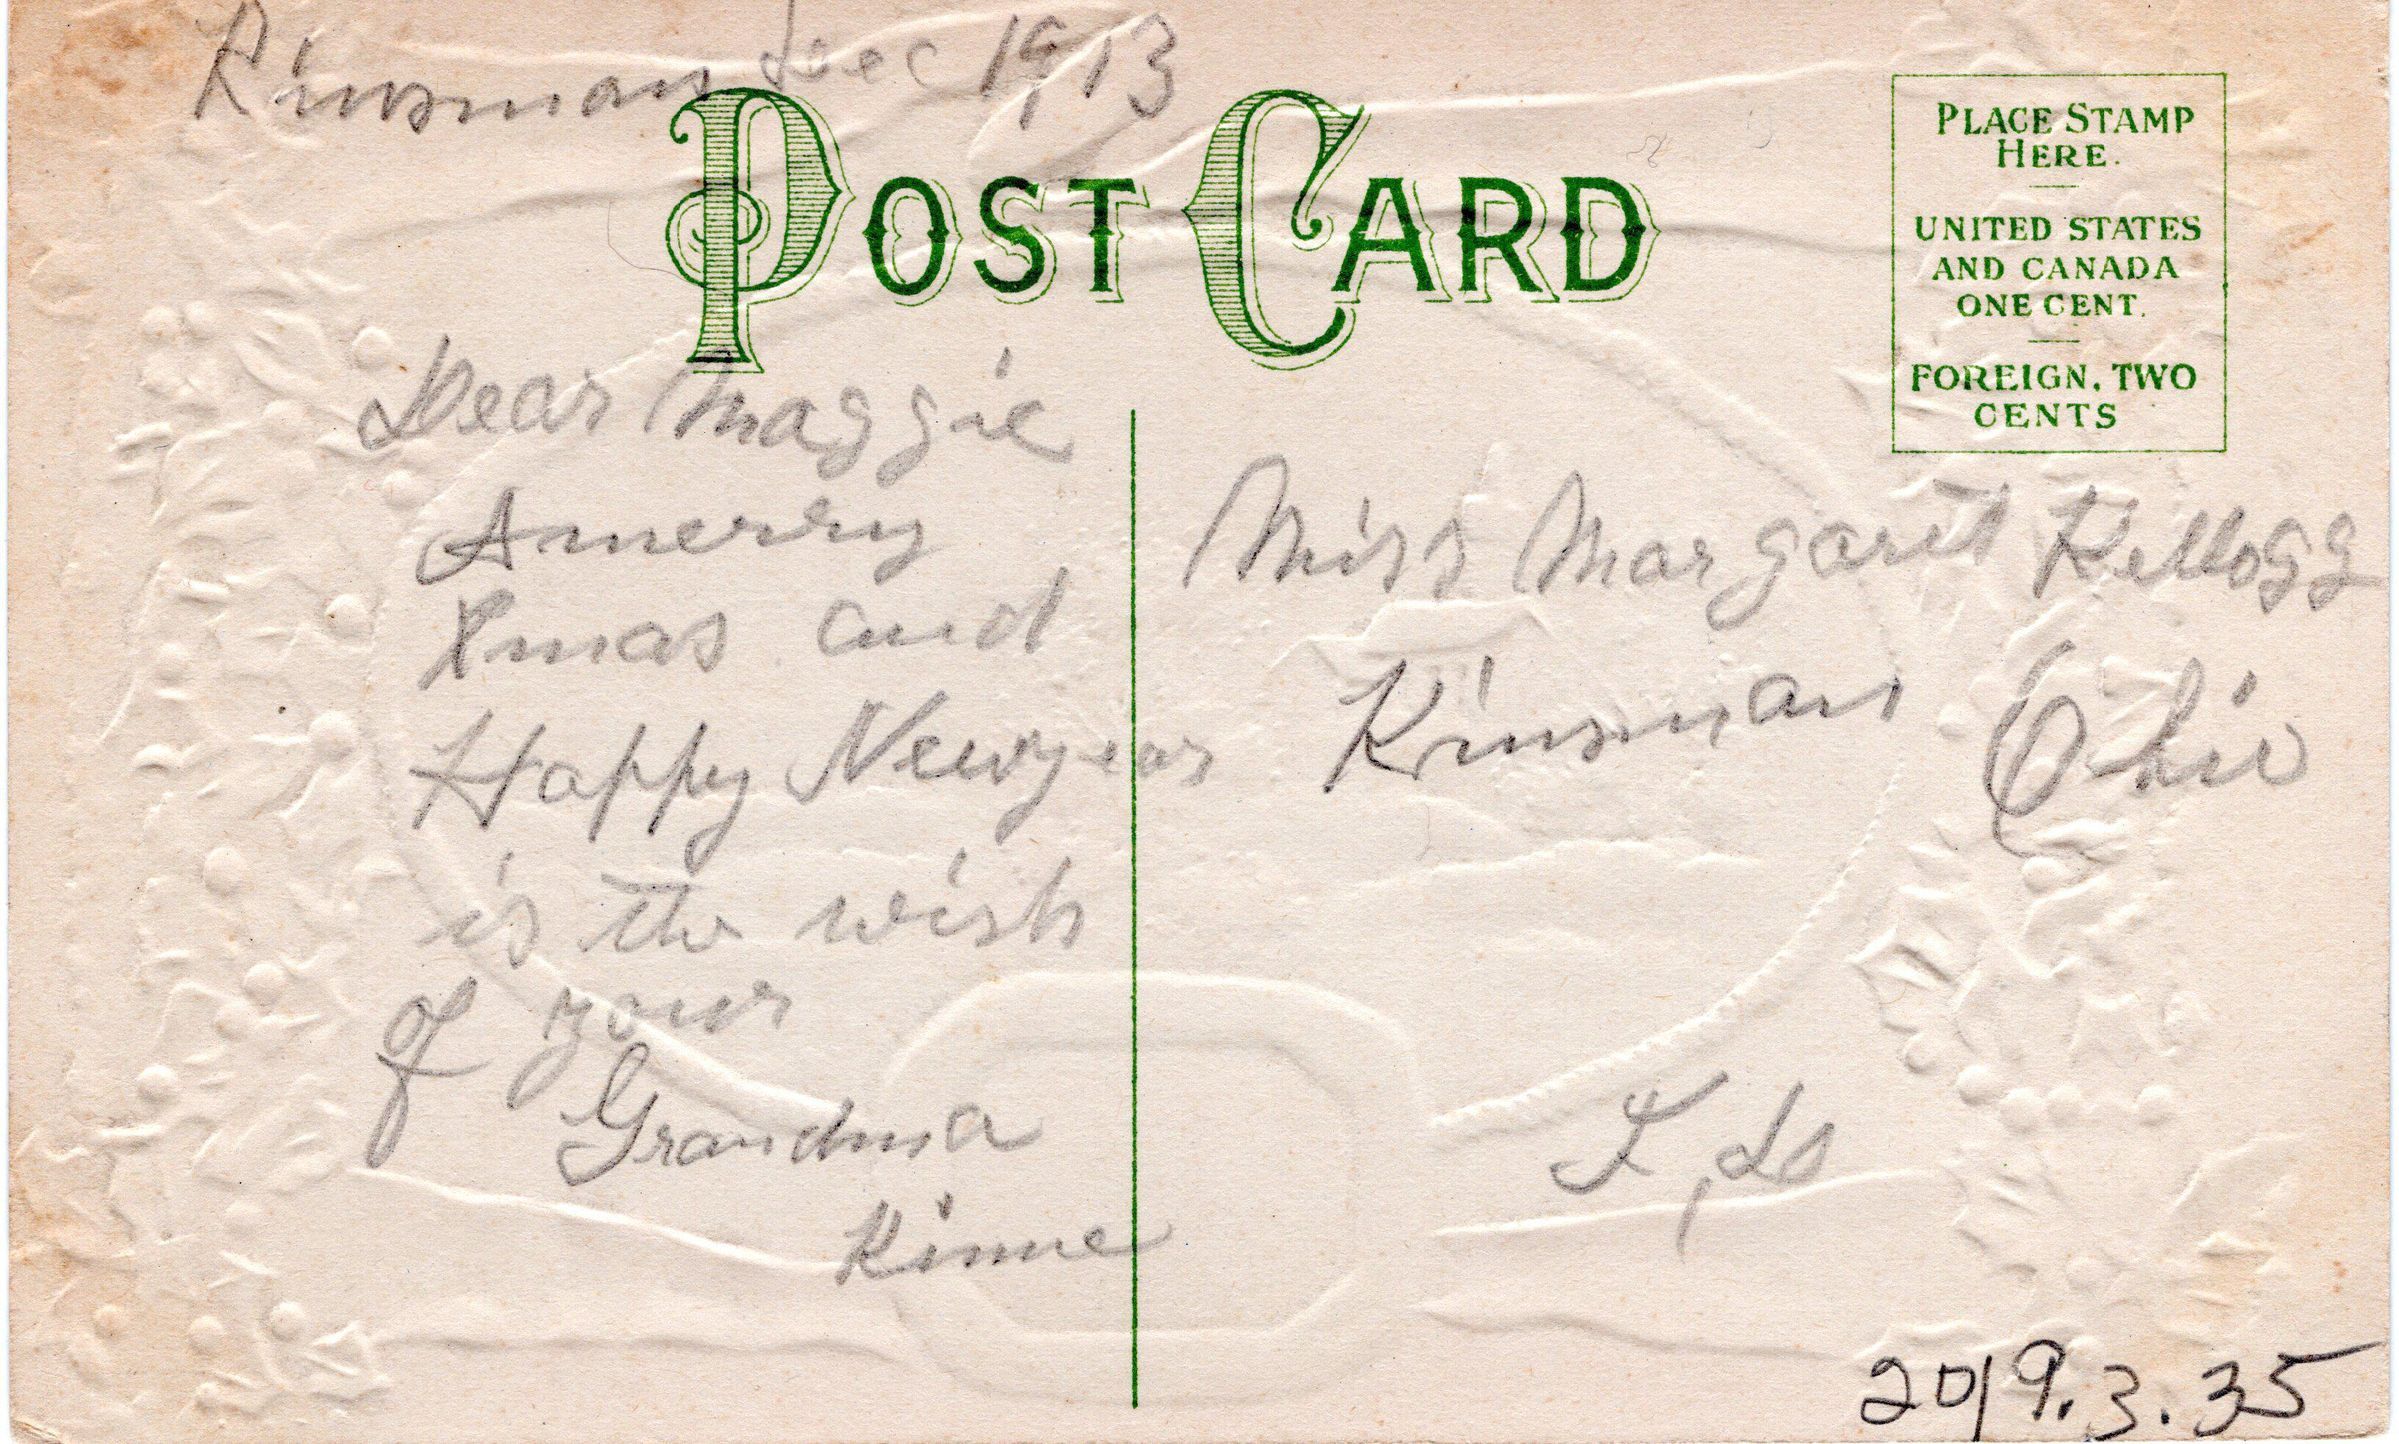 Kinsman Dec 1913
POST CARD
PLACE STAMP
HERE.
UNITED STATES
AND CANADA
ONE CENT.
FOREIGN, TWO
CENTS
Dear Maggie
A merry
Xmas and
Happy New year
is the wish
of your
Grandma
Kinne
Miss Margaret Kellogg
Kinsman Ohio
2019.3.35